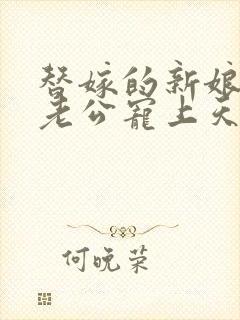 替嫁的新娘
老公寵上天
何晚菜